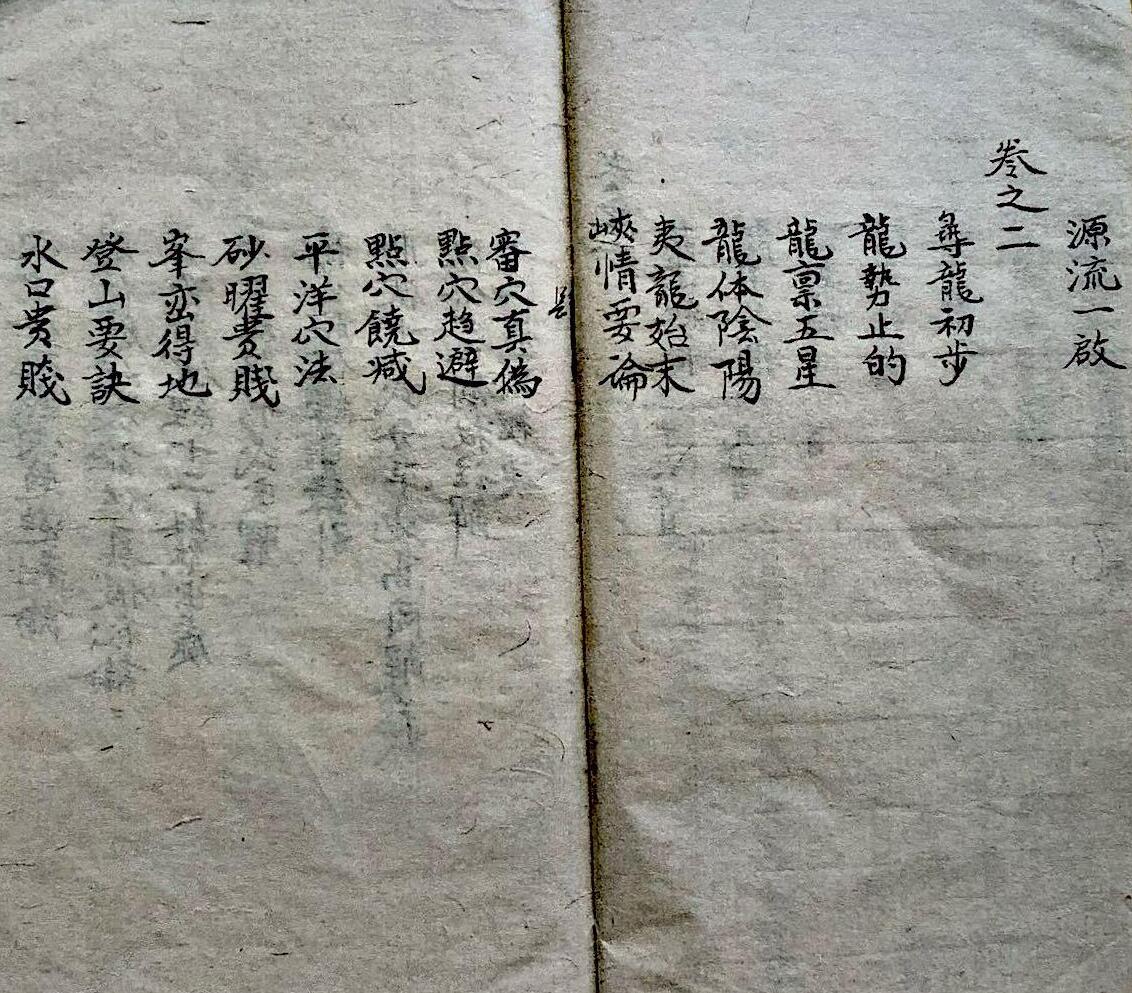 源流一啟
卷之二
尋龍初步
龍勢止的
龍稟五星
龍体陰陽
夷龍始末
峽情要論
審穴真偽
點穴趋避
點穴饒减
平洋穴法
砂曜贵賤
峯峦得地
登山要訣
水口贵賤